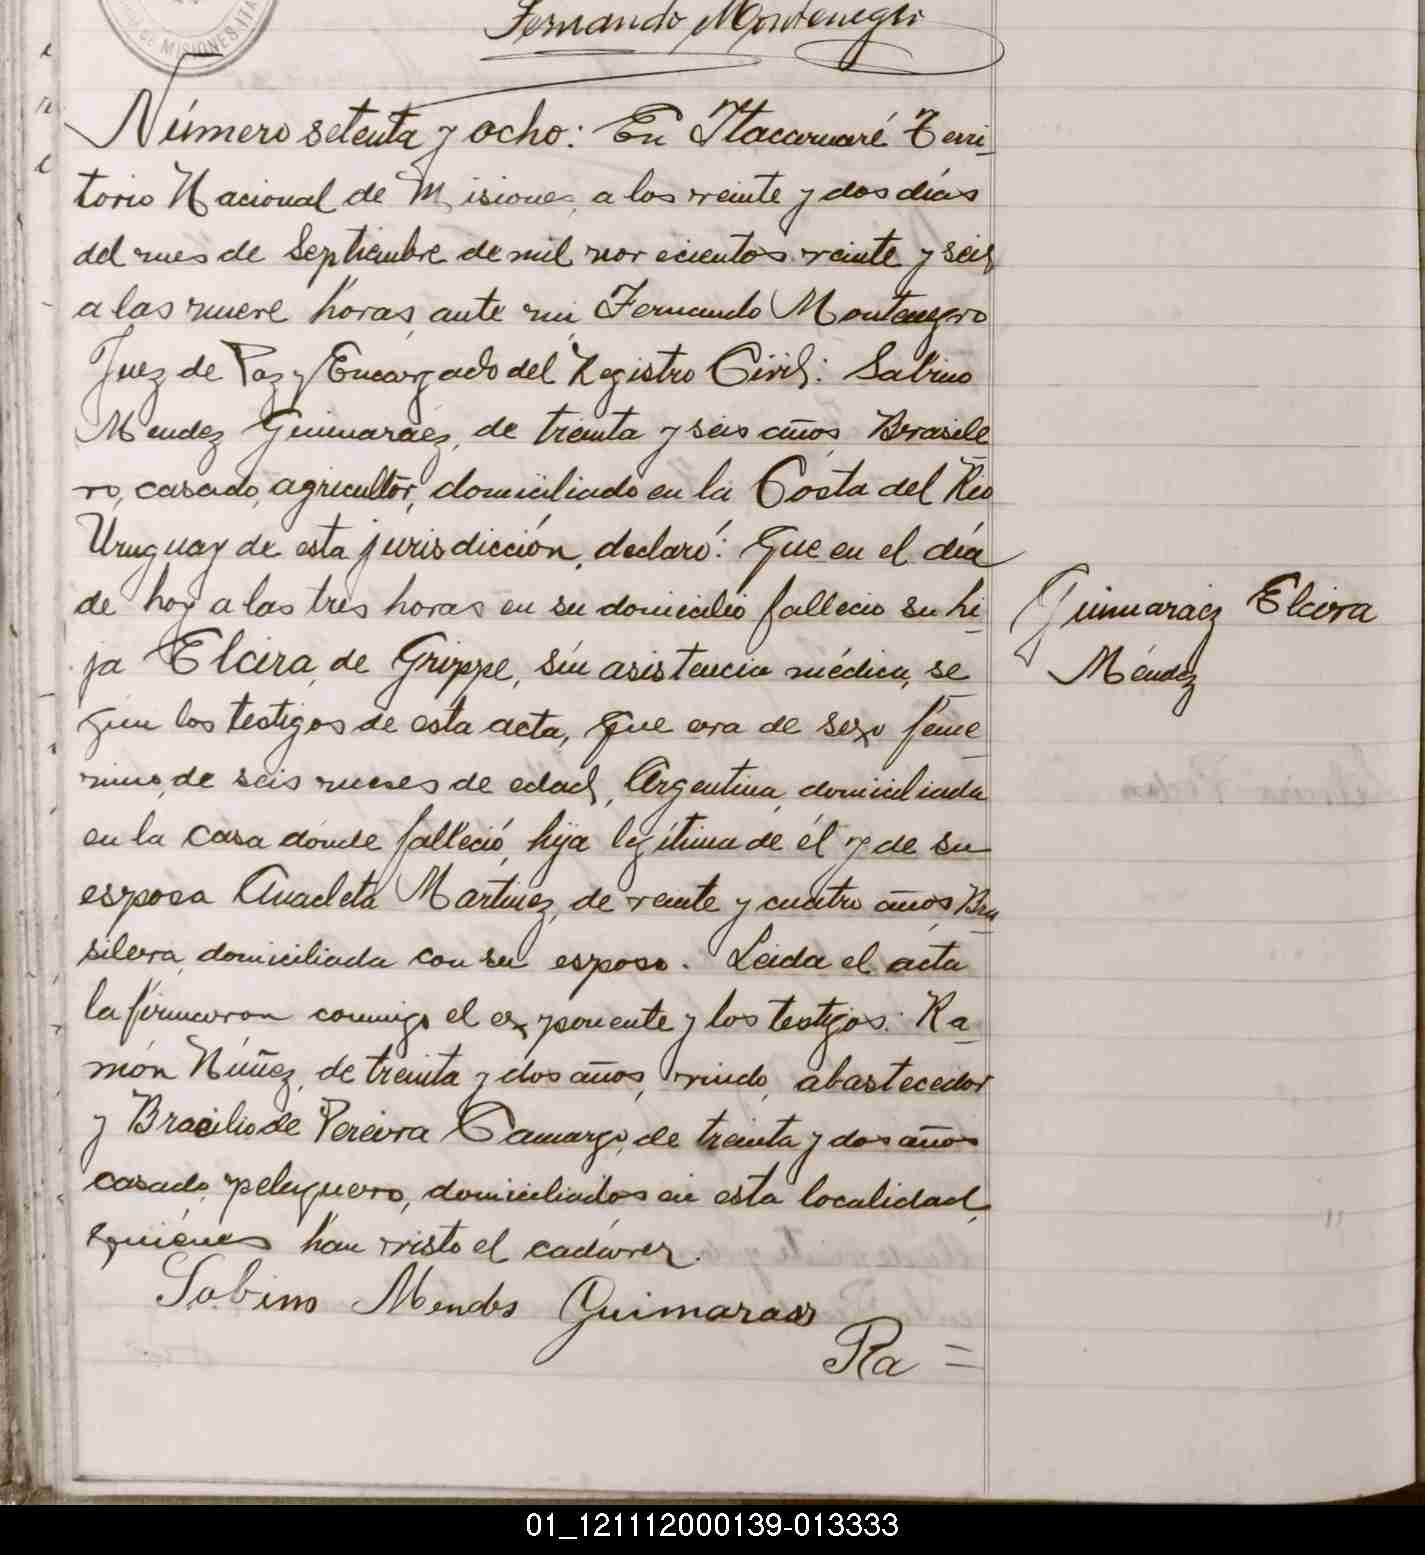 DE MISIONES ITA
Fernando Montenegro
Número setenta y ocho: En Itacaruaré Terri-
torio Nacional de Misiones, a los veinte y dos días
del mes de Septiembre de mil novecientos veinte y seis
a las nueve horas, ante mi Fernando Montenegro
Juez de Paz y Encargado del Registro Civil: Sabino
Mendez Guimaraez, de treinta y seis años, Brasile
ro, casado, agricultor, domiciliado en la Costa del Rio
Uruguay de esta jurisdicción, declaró: Que en el día
de hoy a las tres horas en su domicilio fallecio su hi-
ja Elcira, de Grippe, sin asistencia médica, se
gun los testigos de esta acta, que era de sexo feme
nino, de seis meses de edad, Argentina, domiciliada
en la casa donde falleció, hija legítima de él y de su
esposa Anacleta Martinez, de veinte y cuatro años, Bra
silera, domiciliada con su esposo. Leida el acta
la firmaron conmigo el exponente y los testigos: Ra-
món Núñez, de treinta y dos años, viudo, abastecedor
y Bracilio de Pereira Camargo, de treinta y dos años
casado, peluquero, domiciliados en esta localidad,
quiénes han visto el cadáver.
Sabino Mendes Guimaraes
Ra =
Guimaráez Elcira
Méndez
01_121112000139-013333